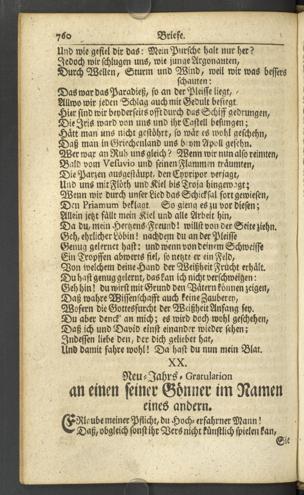 760 Briefe.
Und wie gefiel dir das: Mein Pursche halt nur her?
Jedoch wir schlugen uns, wie junge Argonauten,
Durch Wellen, Sturm und Wind, weil wir was bessers
schauten:
Das war das Paradieß, so an der Pleisse liegt,
Allwo wir jeden Schlag auch mit Gedult besiegt.
Hier sind wir beyderseits offt durch das Schiff gedrungen,
Die Iris ward von uns und ihr Castell besungen;
Hätt man uns nicht gestöhrt, so wär es wohl geschehn,
Daß man in Griechenland uns bym Apoll gesehn.
Wer war an Ruh uns gleich? Wenn wir nun also reimten,
Bald vom Vesuvio und seinen Flammen träumten,
Die Parzen ausgestäupt, den Cypripor versagt,
Und uns mit Flöth und Kiel bis Troja hingewagt;
Wenn wir durch unser Lied das Schicksal fort gewiesen,
Den Priamum beklagt. So gieng es zu vor diesen;
Allein jetzt fällt mein Kiel und alle Arbeit hin,
Da du, mein Hertzens-Freund! willst von der Seite ziehn.
Geh, ehrlicher Löbin! nachdem du an der Pleisse
Genug gelernet hast; und wenn von deinem Schweisse
Ein Tropffen abwerts fiel, so netzte er ein Feld,
Von welchem deine Hand der Weißheit Frücht erhält.
Du hast genug gelernt, das kan ich nicht verschweigen:
Geh hin! du wirst mit Grund den Vätern können zeigen,
Daß wahre Wissenschafft auch keine Zauberey,
Wofern die Gottesfurcht der Weißheit Anfang sey.
Du aber denck' an mich; es wird doch wohl geschehen,
Daß ich und David einst einander wieder sehen;
Indessen liebe den, der dich geliebet hat,
Und damit fahre wohl! Da hast du nun mein Blat.
XX.
Neu-Jahrs-Gratularion
an einen seiner Gönner im Namen
eines andern.
ERlaube meiner Pflicht, du Hoch-erfahrner Mann!
Daß, obgleich sonst ihr Vers nicht künstlich spielen kan,
Sie